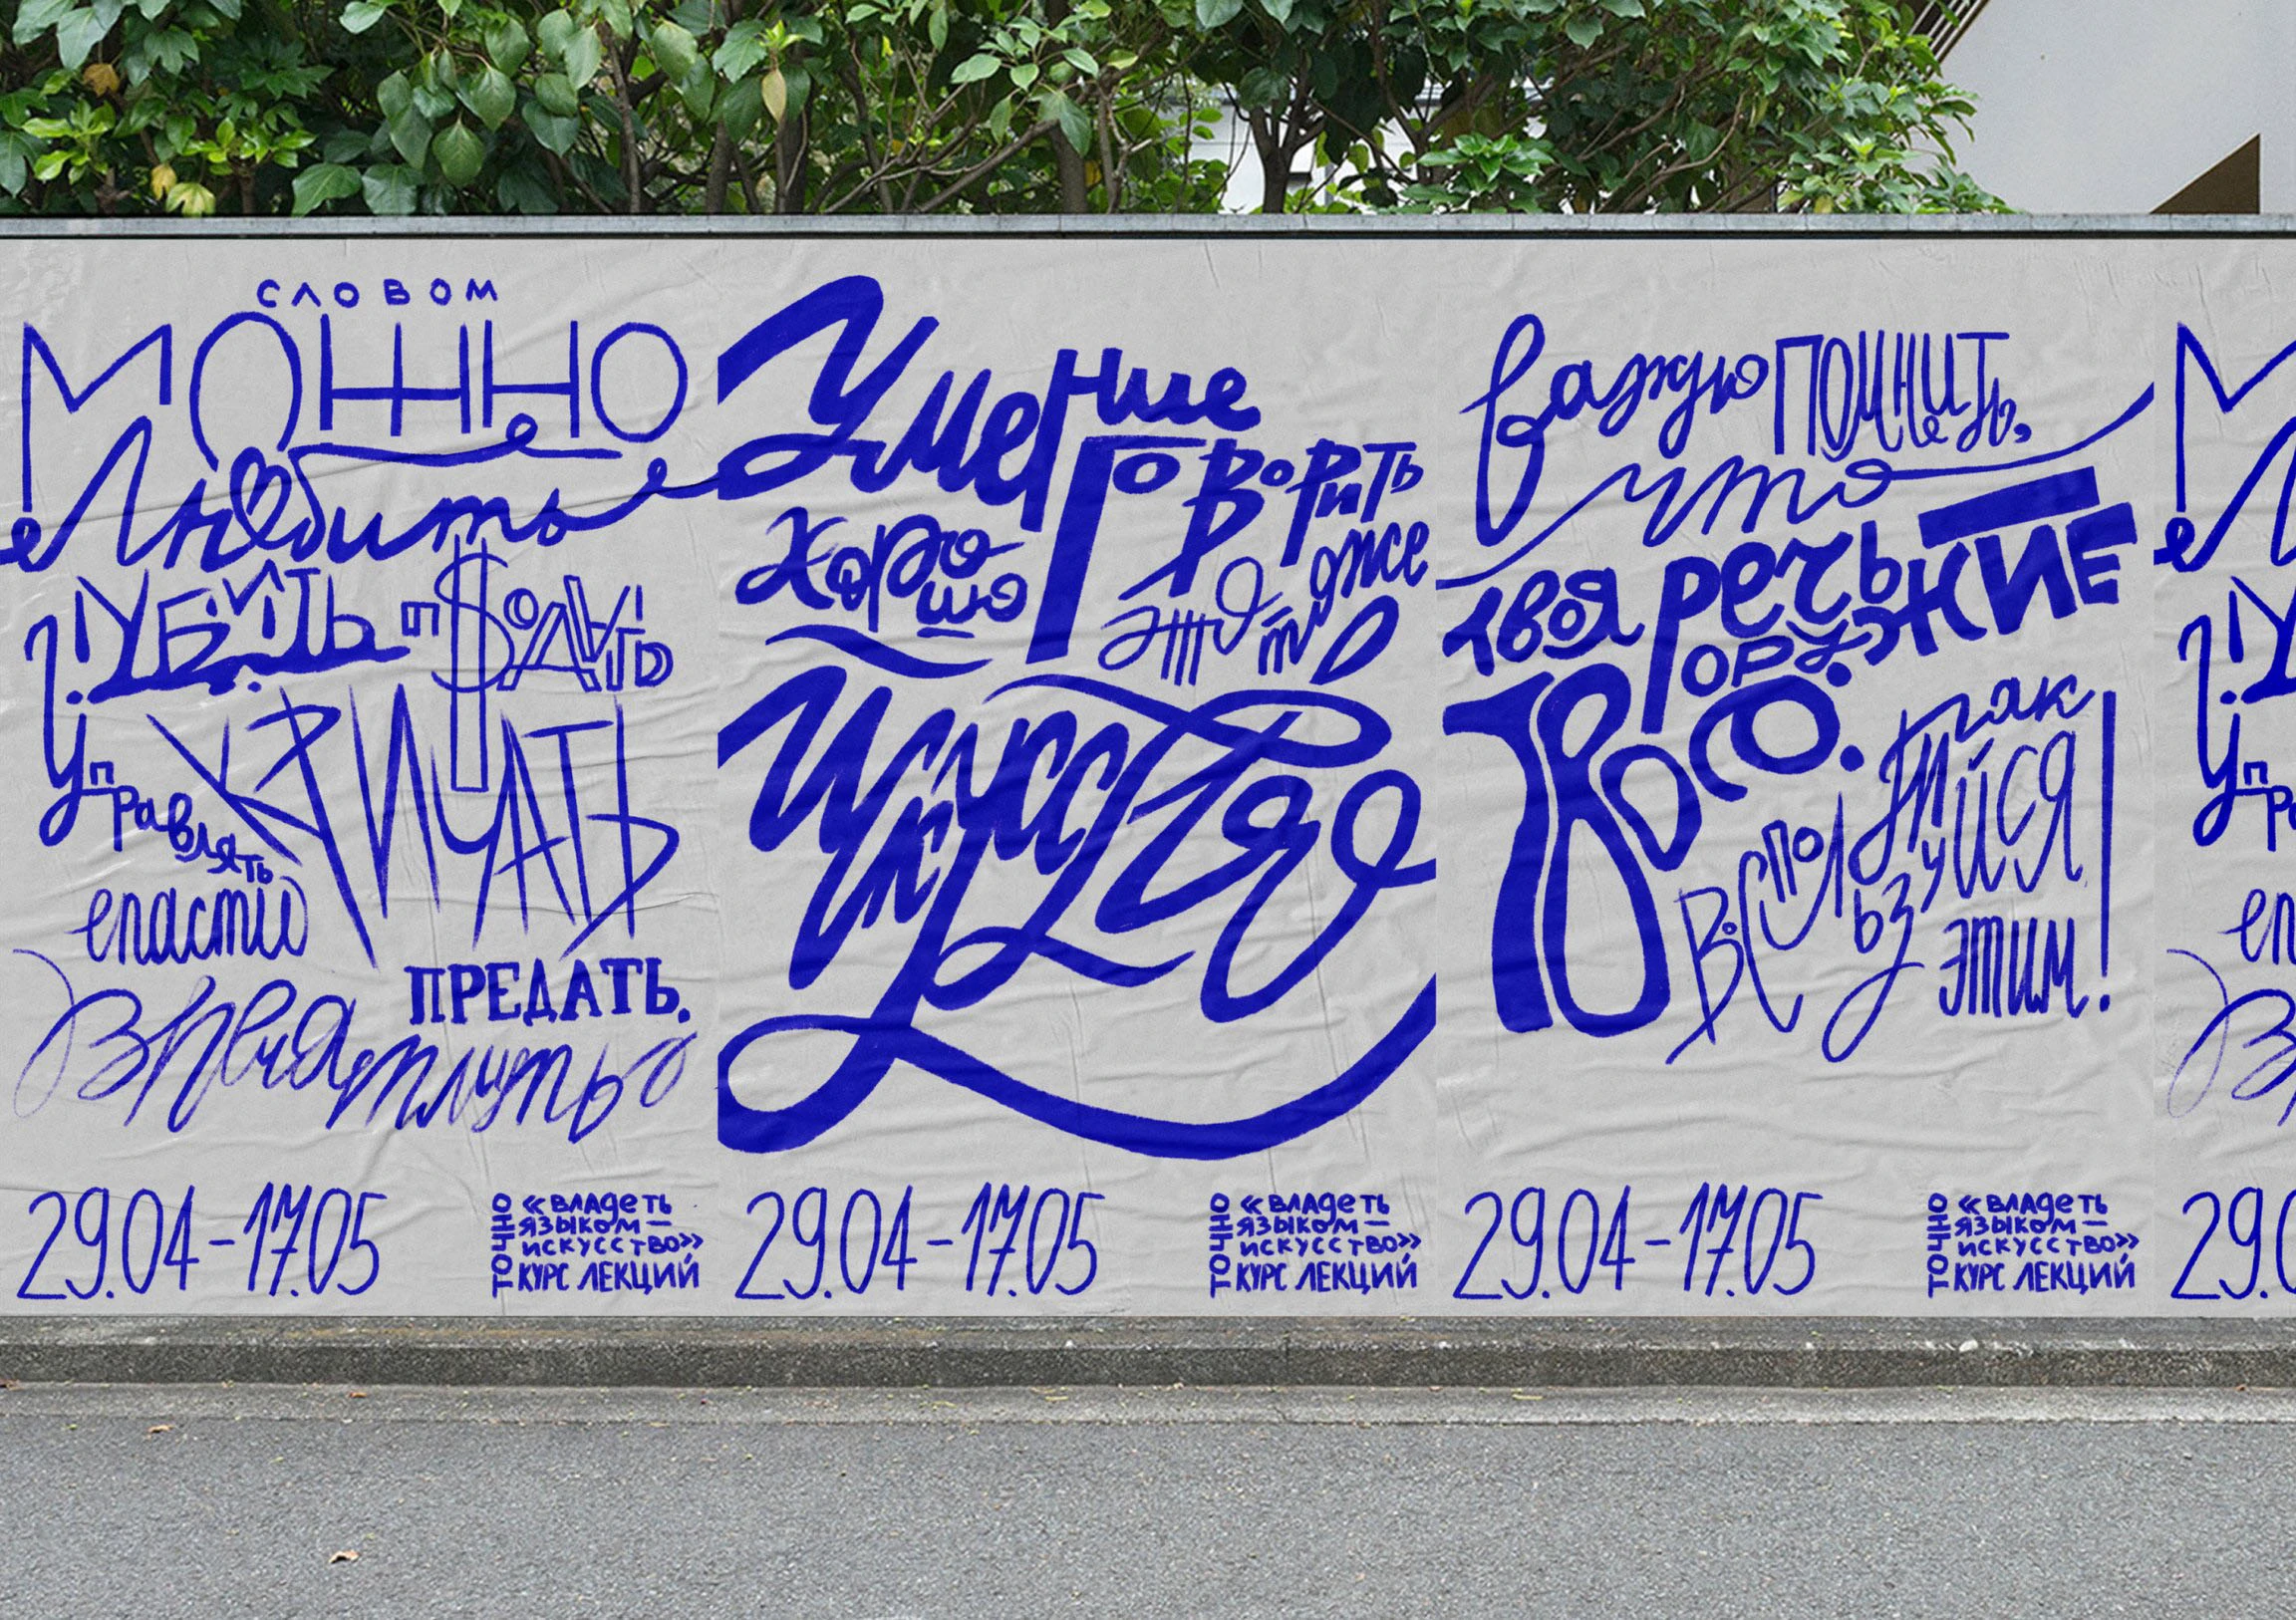 СЛОВОМ
МОЖНО
Любить
УБИТЬ ПРОДАТЬ
Управлять КРИЧАТЬ
спасти
ПРЕДАТЬ.
Впечатлить
29.04-17.05
ТОЧНО
«Владеть
языком —
искусство»
КУРС ЛЕКЦИЙ
Умение
говорить
хорошо
это тоже
Искусство
29.04-17.05
ТОЧНО
«Владеть
языком —
искусство»
КУРС ЛЕКЦИЙ
важно помнить,
что
твоя речь
оружие
твоё.
так
воспользуйся
этим!
29.04-17.05
ТОЧНО
«Владеть
языком —
искусство»
КУРС ЛЕКЦИЙ